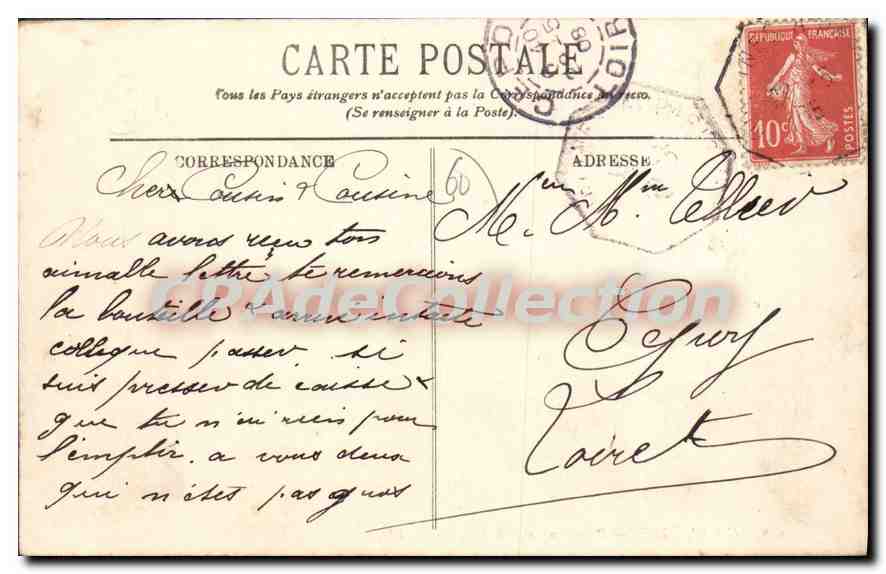 CARTE POSTALE
Tous les Pays étrangers n'acceptent pas la Correspondance au recto.
(Se renseigner à la Poste).
REPUBLIQUE FRANÇAISE
10c
POSTES
CORRESPONDANCE
ADRESSE
60
Cher Cousin & Cousine
Nous avons reçu ton
aimable lettre te remercions
la bouteille arrivé intacte
passer si
suis presser de caisse
que tu n'ai rien pour
l'emplir. a vous deux
qui n'êtes pas gros
M. Mme Tellier
Loiret
CPAdeCollection.com